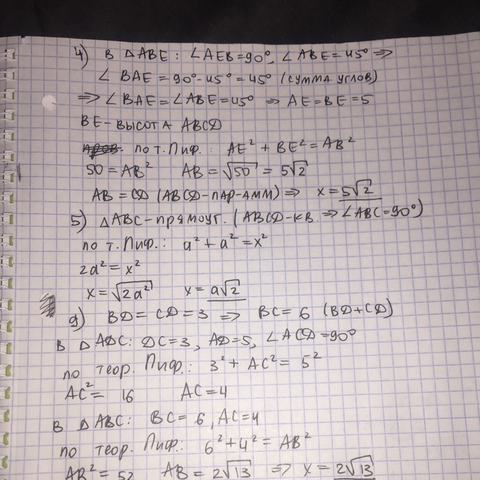 4) В △ABE: ∠AEB=90°, ∠ABE=45° ⇒
∠BAE = 90°-45° = 45° (сумма углов)
⇒ ∠BAE=∠ABE=45° ⇒ AE=BE=5
BE-высота ABCD
по т. Пиф.: AE² + BE² = AB²
50 = AB² AB = √50 = 5√2
AB = CD (ABCD-пар-амм) ⇒ x = 5√2
5) △ABC-прямоуг. (ABCD-кв ⇒ ∠ABC=90°)
по т. Пиф.: a² + a² = x²
2a² = x²
x = √2a² x = a√2
9) BD = CD = 3 ⇒ BC = 6 (BD+CD)
В △ADC: DC=3, AD=5, ∠ACD=90°
по теор. Пиф.: 3² + AC² = 5²
AC² = 16 AC = 4
В △ABC: BC = 6, AC=4
по теор. Пиф.: 6² + 4² = AB²
AB² = 52 AB = 2√13 ⇒ x = 2√13